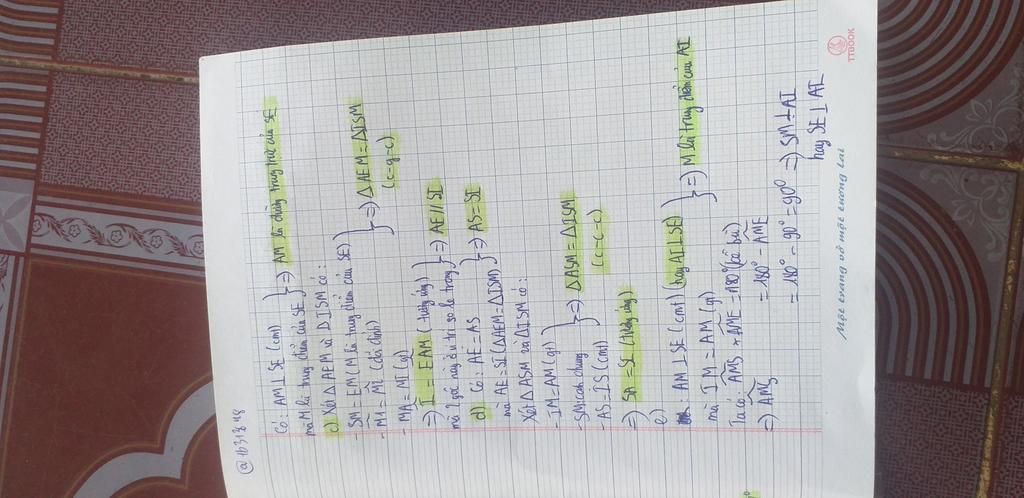 @1631848
Có: AM ⊥ SE (cmt)
mà M là trung điểm của SE } => AM là đường trung trực của SE
c) Xét Δ AEM và Δ ISM có:
- SM = EM (M là trung điểm của SE)
- M1 = M2 (đối đỉnh)
- MA = MI (gt)
} => Δ AEM = Δ ISM (c-g-c)
=> I = EAM (tương ứng)
mà 2 góc này ở vị trí so le trong } => AE // SI
d) Có: AE = AS
mà AE = SI (ΔAEM = ΔISM) } => AS = SI
Xét Δ ASM và Δ ISM có:
- IM = AM (gt)
- SM: cạnh chung
- AS = IS (cmt)
} => ΔASM = ΔISM (c-c-c)
=> SA = SI (tương ứng)
e) : AM ⊥ SE (cmt) (hay AI ⊥ SE)
mà IM = AM (gt) } => M là trung điểm của AI
Ta có: AMS + AME = 180° (kề bù)
=> AMS = 180° - AME
= 180° - 90° = 90° => SM ⊥ AI
hay SE ⊥ AI
Một trang vở một tương lai
TTBOOK